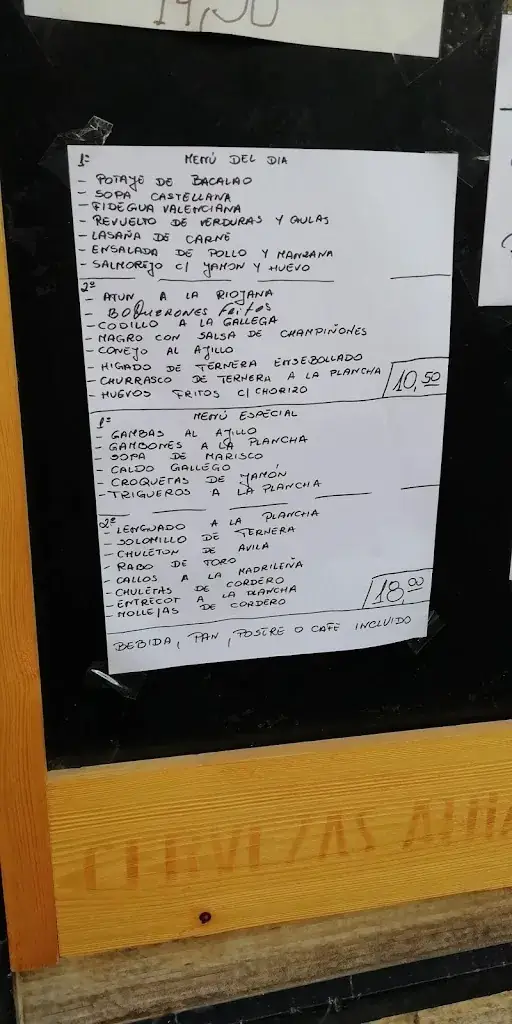 14,50
1º MENÚ DEL DIA
- POTAJE DE BACALAO
- SOPA CASTELLANA
- FIDEGUA VALENCIANA
- REVUELTO DE VERDURAS Y GULAS
- LASAÑA DE CARNE
- ENSALADA DE POLLO Y MANZANA
- SALMOREJO C/ JAMON Y HUEVO
2º
- ATUN A LA RIOJANA
- BOQUERONES fritos
- CODILLO A LA GALLEGA
- MAGRO CON SALSA DE CHAMPIÑONES
- CONEJO AL AJILLO
- HIGADO DE TERNERA ENSEBOLLADO
- CHURRASCO DE TERNERA A LA PLANCHA
- HUEVOS FRITOS C/ CHORIZO
10,50
1º MENÚ ESPECIAL
- GAMBAS AL AJILLO
- GAMBONES A LA PLANCHA
- SOPA DE MARISCO
- CALDO GALLEGO
- CROQUETAS DE JAMÓN
- TRIGUEROS A LA PLANCHA
2º
- LENGUADO A LA PLANCHA
- SOLOMILLO DE TERNERA
- CHULETON DE AVILA
- RABO DE TORO
- CALLOS A LA MADRILEÑA
- CHULETAS DE CORDERO
- ENTRECOT A LA PLANCHA
- MOLLEJAS DE CORDERO
18,00
BEBIDA, PAN, POSTRE O CAFE INCLUIDO
CERVEZAS